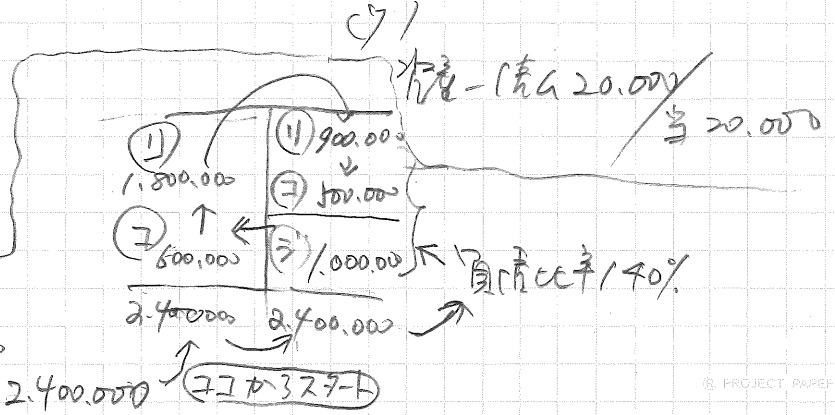 (ウ)
資産一債ム 20.000/
当 20.000
リ 1,800.000
リ 900.000
コ 500.000
コ 600,000
ジ 1.000.00
負債比率 140%
2.400000 2.400.000
2.400.000 ココからスタート
® PROJECT PAPER